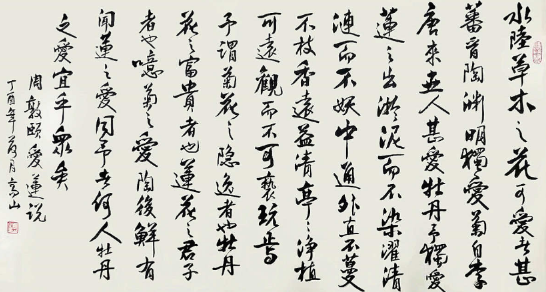 水陸草木之花可愛者甚
蕃晉陶渊明獨愛菊自李
唐来世人甚愛牡丹予獨愛
蓮之出淤泥而不染濯清
漣而不妖中通外直不蔓
不枝香遠益清亭亭净植
可遠觀而不可褻玩焉
予謂菊花之隐逸者也牡丹
花之富貴者也蓮花之君子
者也噫菊之愛陶後鮮有
聞蓮之愛同予者何人牡丹
之愛宜乎眾矣
周敦頤愛蓮说
丁酉年夏月高山